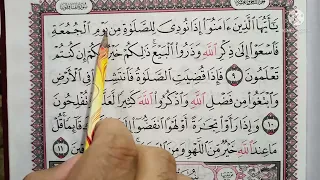 يَٰٓأَيُّهَا الَّذِينَ ءَامَنُوٓا۟ إِذَا نُودِيَ لِلصَّلَوٰةِ مِن يَوْمِ الْجُمُعَةِ
فَاسْعَوْا۟ إِلَىٰ ذِكْرِ اللَّهِ وَذَرُوا۟ الْبَيْعَ ذَٰلِكُمْ خَيْرٌ لَّكُمْ إِن كُنتُمْ
تَعْلَمُونَ ٩ فَإِذَا قُضِيَتِ الصَّلَوٰةُ فَانتَشِرُوا۟ فِي الْأَرْضِ
وَابْتَغُوا۟ مِن فَضْلِ اللَّهِ وَاذْكُرُوا۟ اللَّهَ كَثِيرًا لَّعَلَّكُمْ تُفْلِحُونَ
١٠ وَإِذَا رَأَوْا۟ تِجَٰرَةً أَوْ لَهْوًا انفَضُّوٓا۟ قَآئِمًا قُلْ
مَا عِندَ اللَّهِ خَيْرٌ مِّنَ اللَّهْوِ وَمِنَ ١١